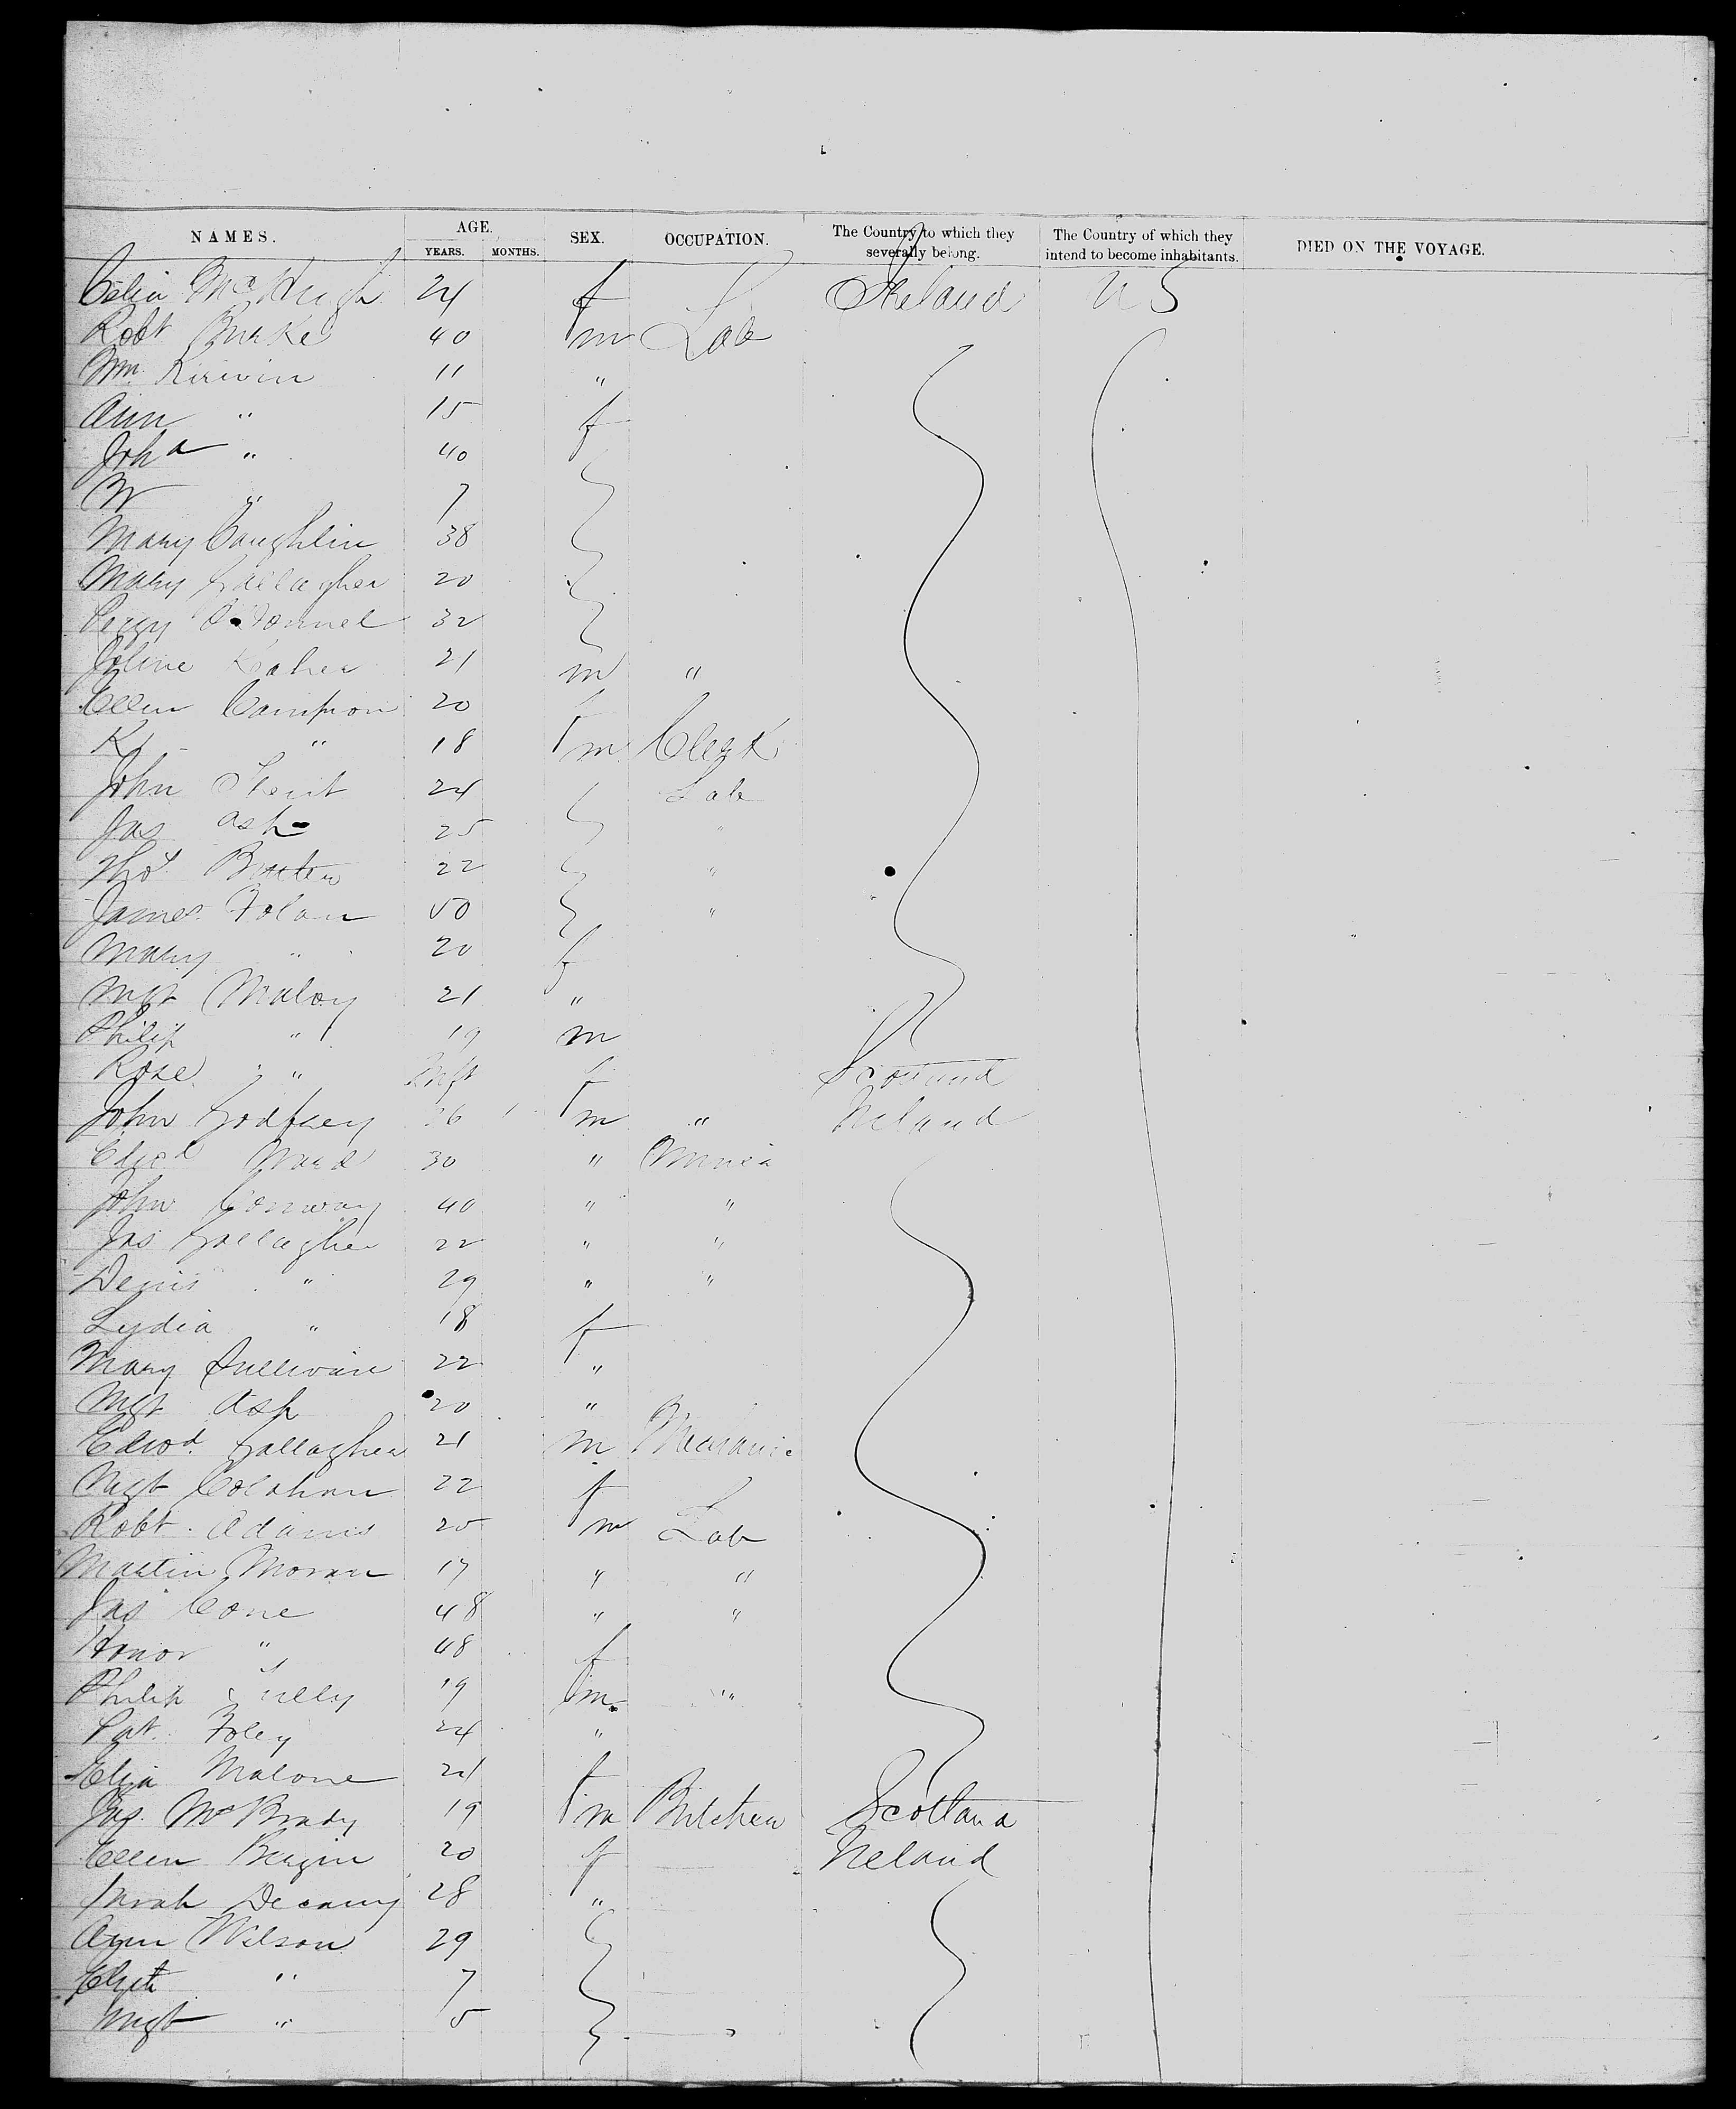 NAMES. AGE. SEX. OCCUPATION. The Country to which they severally belong. The Country of which they intend to become inhabitants. DIED ON THE VOYAGE.
YEARS. MONTHS.
Celia McHugh 24 f Ireland U S
Robt Burke 40 m Lab
Wm Kirivin 11 "
Ann " 15 f
Joha " 40
W " 7
Mary Coughlin 38
Mary Gallagher 20
Peggy O'Donnel 32
21 m "
Ellen Campion 20 f
" 18 m Clerk
John 24 Lab
Jas Ash 25 "
Thos 22 "
James Folan 50 "
Mary " 20 f
Mgt Maloy 21 "
Philip " 19 m
Rose " Inft f Scotland
John Godfrey 26 m " Ireland
Ward 30 " Miner
John Conway 40 " "
Jas Gallagher 22 " "
Denis " 29 " "
Lydia " 18 f
Mary Sullivan 22 "
Mgt Ash 20 "
Edwd Gallagher 21 m Mechanic
Mgt 22 f
Robt Adams 25 m Lab
Martin Moran 17 " "
Jas Cone 48 " "
Honor " 48 f
Philip 19 m "
Pat. Foley 24 "
Eliza Malone 21 f
Jas McBrady 19 m Butcher Scotland
Ellen Bergin 20 f Ireland
28 "
Ann Wilson 29
Elizth " 7
Mgt " 5